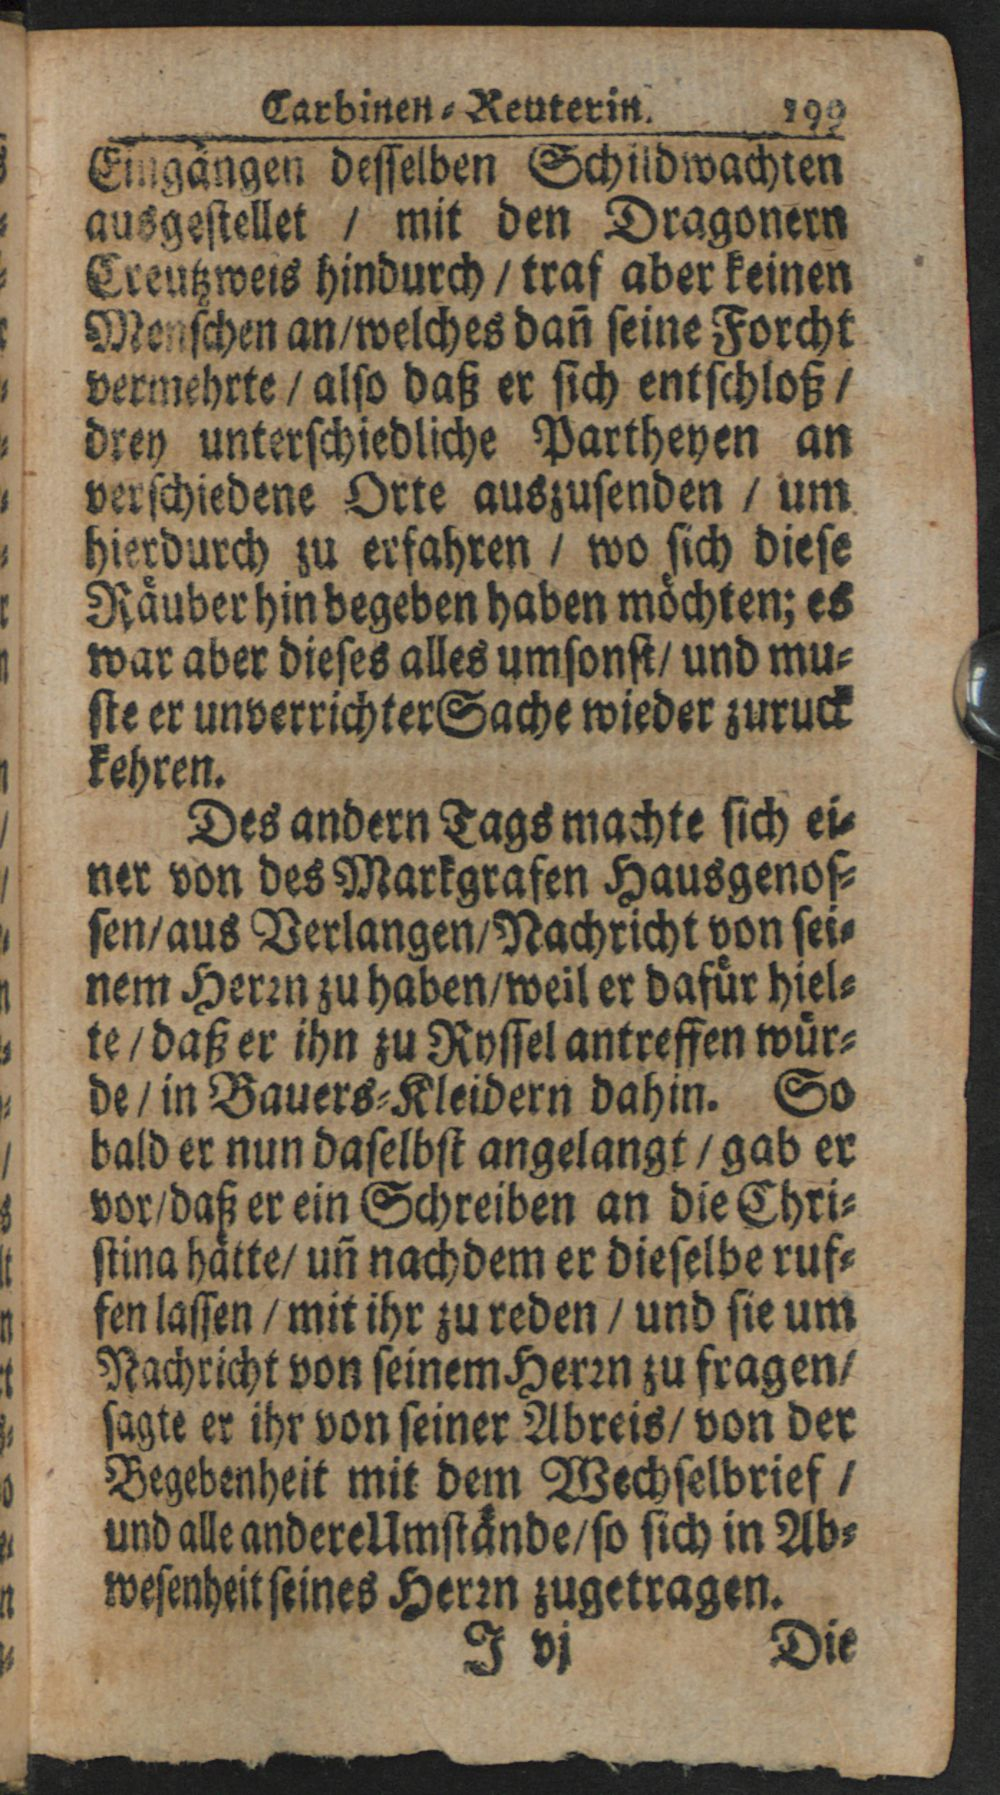 Carbinen-Reuterin. 199
Eingången desselben Schildwachten
ausgestellet / mit den Dragonern
Creutzweis hindurch / traf aber keinen
Menschen an/welches dañ seine Forcht
vermehrte / also daß er sich entschloß /
drey unterschiedliche Partheyen an
verschiedene Orte auszusenden / um
hierdurch zu erfahren / wo sich diese
Råuber hin begeben haben möchten; es
war aber dieses alles umsonst/ und mu-
ste er unverrichter Sache wieder zuruck
kehren.
Des andern Tags machte sich ei-
ner von des Markgrafen Hausgenos-
sen/aus Verlangen/Nachricht von sei-
nem Herꝛn zu haben/weil er dafür hiel-
te / daß er ihn zu Ryssel antreffen wür-
de / in Bauers-Kleidern dahin. So
bald er nun daselbst angelangt / gab er
vor/daß er ein Schreiben an die Chri-
stina håtte/ uñ nachdem er dieselbe ruf-
fen lassen / mit ihr zu reden / und sie um
Nachricht von seinem Herꝛn zu fragen/
sagte er ihr von seiner Abreis/ von der
Begebenheit mit dem Wechselbrief /
und alle andere Umstånde/so sich in Ab-
wesenheit seines Herꝛn zugetragen.
J vj Die